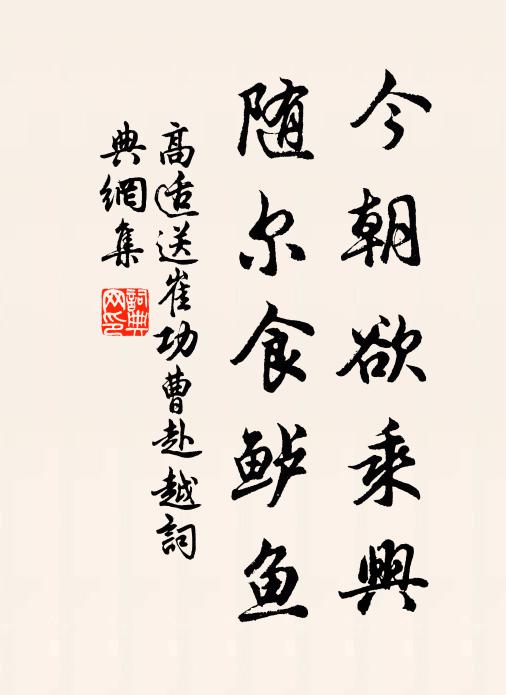 今朝欲乘興
随尔食鲈鱼
高适送崔功曹赴越詞
典網集
詞典
网印